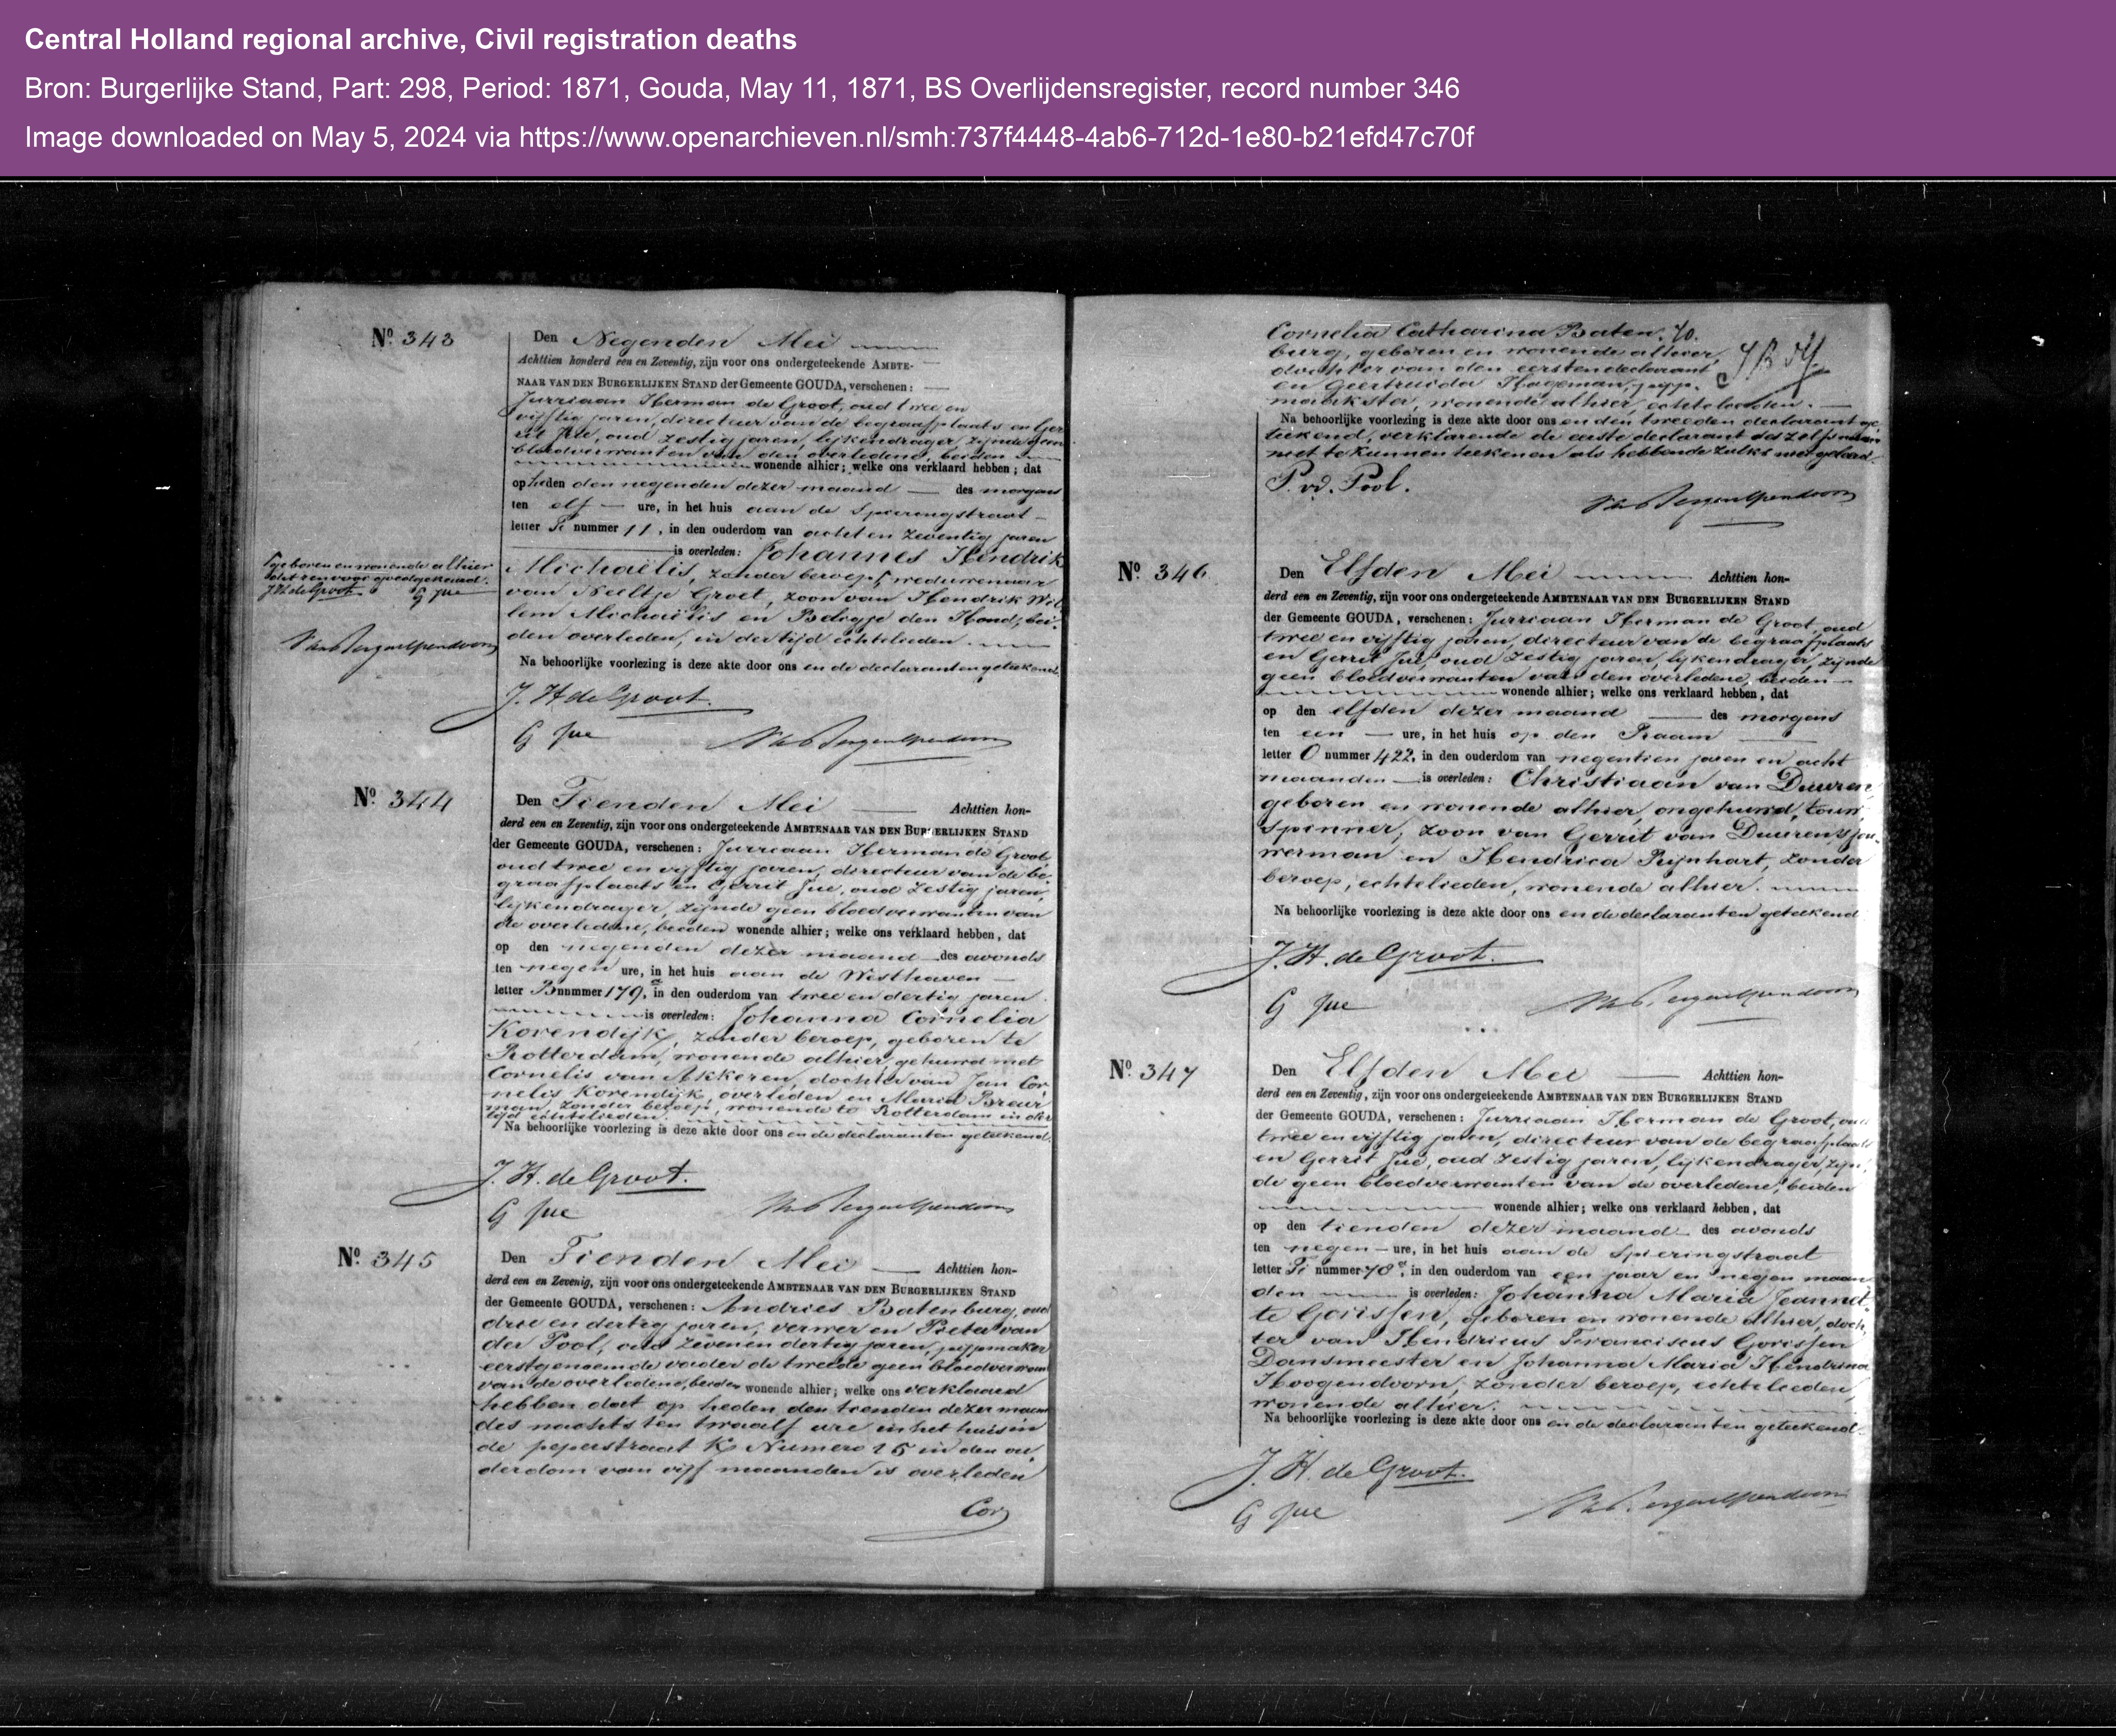 Central Holland regional archive, Civil registration deaths
Bron: Burgerlijke Stand, Part: 298, Period: 1871, Gouda, May 11, 1871, BS Overlijdensregister, record number 346
Image downloaded on May 5, 2024 via https://www.openarchieven.nl/smh:737f4448-4ab6-712d-1e80-b21efd47c70f
No. 343
Den Negenden Mei
Achttien honderd een en Zeventig, zijn voor ons ondergeteekende AMBTE-
NAAR VAN DEN BURGERLIJKEN STAND der Gemeente GOUDA, verschenen:
Jurriaan Herman de Groot, oud twee en
vijftig jaren, directeur van de begraafplaats en Ger
rit Jue, oud zestig jaren, lijkendrager, zijnde geen
bloedverwanten van den overledene, beiden
wonende alhier; welke ons verklaard hebben; dat
op heden den negenden dezer maand des morgens
ten elf ure, in het huis aan de Spieringstraat
letter Pi nummer 11, in den ouderdom van acht en zeventig jaren
is overleden: Johannes Hendrik
Michaëlis, zonder beroep, weduwenaar
van Neeltje Groet, zoon van Hendrik Wil
lem Michaëlis en Baligje den Hond, bei-
den overleden, in der tijd echtelieden.
Na behoorlijke voorlezing is deze akte door ons en de declaranten geteekend
geboren en wonende alhier
J. H. de Groot G Jue
J. H. de Groot.
G Jue
No. 344
Den Tienden Mei Achttien hon-
derd een en Zeventig, zijn voor ons ondergeteekende AMBTENAAR VAN DEN BURGERLIJKEN STAND
der Gemeente GOUDA, verschenen: Jurriaan Herman de Groot,
oud twee en vijftig jaren, directeur van de be
graafplaats en Gerrit Jue, oud zestig jaren,
lijkendrager, zijnde geen bloedverwanten van
de overledene, beiden wonende alhier; welke ons verklaard hebben, dat
op den negenden dezer maand des avonds
ten negen ure, in het huis aan de Westhaven
letter B nummer 179a, in den ouderdom van twee en dertig jaren
is overleden: Johanna Cornelia
Korendijk, zonder beroep, geboren te
Rotterdam, wonende alhier, gehuwd met
Cornelis van Akkeren, dochter van Jan Cor
nelis Korendijk, overleden en Maria Breur
man, zonder beroep, wonende te Rotterdam in der
tijd echtelieden.
Na behoorlijke voorlezing is deze akte door ons en de declaranten geteekend.
J. H. de Groot.
G Jue
No. 345
Den Tienden Mei Achttien hon-
derd een en Zevenig, zijn voor ons ondergeteekende AMBTENAAR VAN DEN BURGERLIJKEN STAND
der Gemeente GOUDA, verschenen: Andries Batenburg, oud
drie en dertig jaren, verwer en Pieter van
der Pool, oud zeven en dertig jaren, pijpmaker
eerstgenoemde vader de tweede geen bloedverwant
van de overledene, beiden wonende alhier; welke ons verklaard
hebben dat op heden den tienden dezer maand
des nachts ten twaalf ure in het huis in
de peperstraat K Numero 15 in den ou
derdom van vijf maanden is overleden
Cor
Cornelia Catharina Baten-
burg, geboren en wonende alhier,
dochter van den eersten declarant
en Geertruida Hageman, pijp-
maakster, wonende alhier, echtelieden.
Na behoorlijke voorlezing is deze akte door ons en den tweeden declarant ge
teekend, verklarende de eerste declarant
niet te kunnen teekenen als hebbende zulks niet geleerd.
P. vd. Pool.
No. 346
Den Elfden Mei Achttien hon-
derd een en Zeventig, zijn voor ons ondergeteekende AMBTENAAR VAN DEN BURGERLIJKEN STAND
der Gemeente GOUDA, verschenen: Jurriaan Herman de Groot, oud
twee en vijftig jaren, directeur van de begraafplaats
en Gerrit Jue, oud zestig jaren, lijkendrager, zijnde
geen bloedverwanten van den overledene, beiden
wonende alhier; welke ons verklaard hebben, dat
op den elfden dezer maand des morgens
ten een ure, in het huis op den Raam
letter O nummer 422, in den ouderdom van negentien jaren en acht
maanden is overleden: Christiaan van Duuren,
geboren en wonende alhier, ongehuwd, touw-
spinner, zoon van Gerrit van Duuren, sjou-
werman en Hendrica Rijnhart, zonder
beroep, echtelieden, wonende alhier.
Na behoorlijke voorlezing is deze akte door ons en de declaranten geteekend
J. H. de Groot.
G Jue
No. 347
Den Elfden Mei Achttien hon-
derd een en Zeventig, zijn voor ons ondergeteekende AMBTENAAR VAN DEN BURGERLIJKEN STAND
der Gemeente GOUDA, verschenen: Jurriaan Herman de Groot, oud
twee en vijftig jaren, directeur van de begraafplaats
en Gerrit Jue, oud zestig jaren, lijkendrager, zijn-
de geen bloedverwanten van de overledene, beiden
wonende alhier; welke ons verklaard hebben, dat
op den tienden dezer maand des avonds
ten negen ure, in het huis aan de Spieringstraat
letter Pi nummer 78a, in den ouderdom van een jaar en negen maan
den is overleden: Johanna Maria Jeannet-
te Gorissen, geboren en wonende alhier, doch
ter van Hendricus Franciscus Gorissen
Dansmeester en Johanna Maria Hendrina
Hoogendoorn, zonder beroep, echtelieden,
wonende alhier.
Na behoorlijke voorlezing is deze akte door ons en de declaranten geteekend.
J. H. de Groot.
G Jue